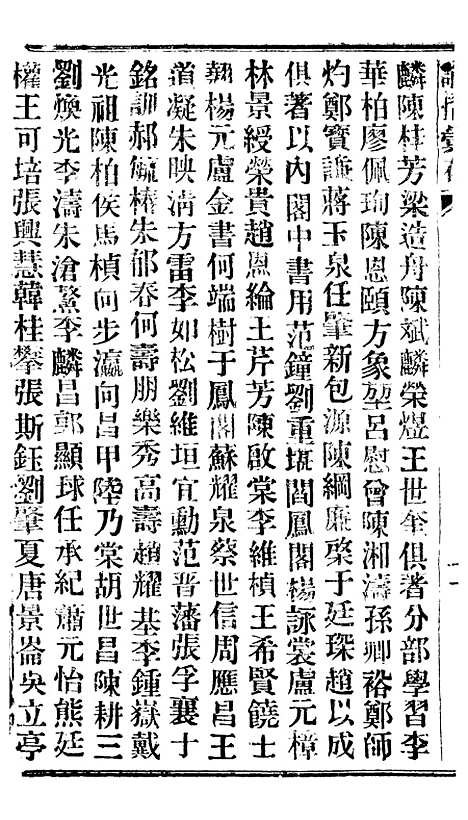 諭摺彙存
麟陳桂芳梁造舟陳斌麟榮煜王世奎俱著分部學習李
華柏廖佩珣陳恩頤方象堃呂慰曾陳湘濤孫卿裕鄭師
灼鄭寶謙蔣玉泉任肇新包源陳綱廉棨于廷琛趙以成
俱著以內閣中書用范鐘劉重堪閻鳳閣楊詠裳盧元樟
林景綬榮貴趙恩綸王芹芳陳啟棠李維楨王希賢饒士
翹楊元盧金書何端樹于鳳閣蘇耀泉蔡世信周應昌王
道凝朱映清方雷李如松劉維垣宜勳范晋藩張孚襄十
銘訓郝毓椿朱郁春何壽朋樂秀高壽趙耀基李鍾嶽戴
光祖陳柏侯馬楨向步瀛向昌甲陸乃棠胡世昌陳耕三
劉煥光李濤朱滄鰲李麟昌郭顯球任承紀蕭元怡熊廷
權王可培張興慧韓桂攀張斯鈺劉肇夏唐景崙吳立亭